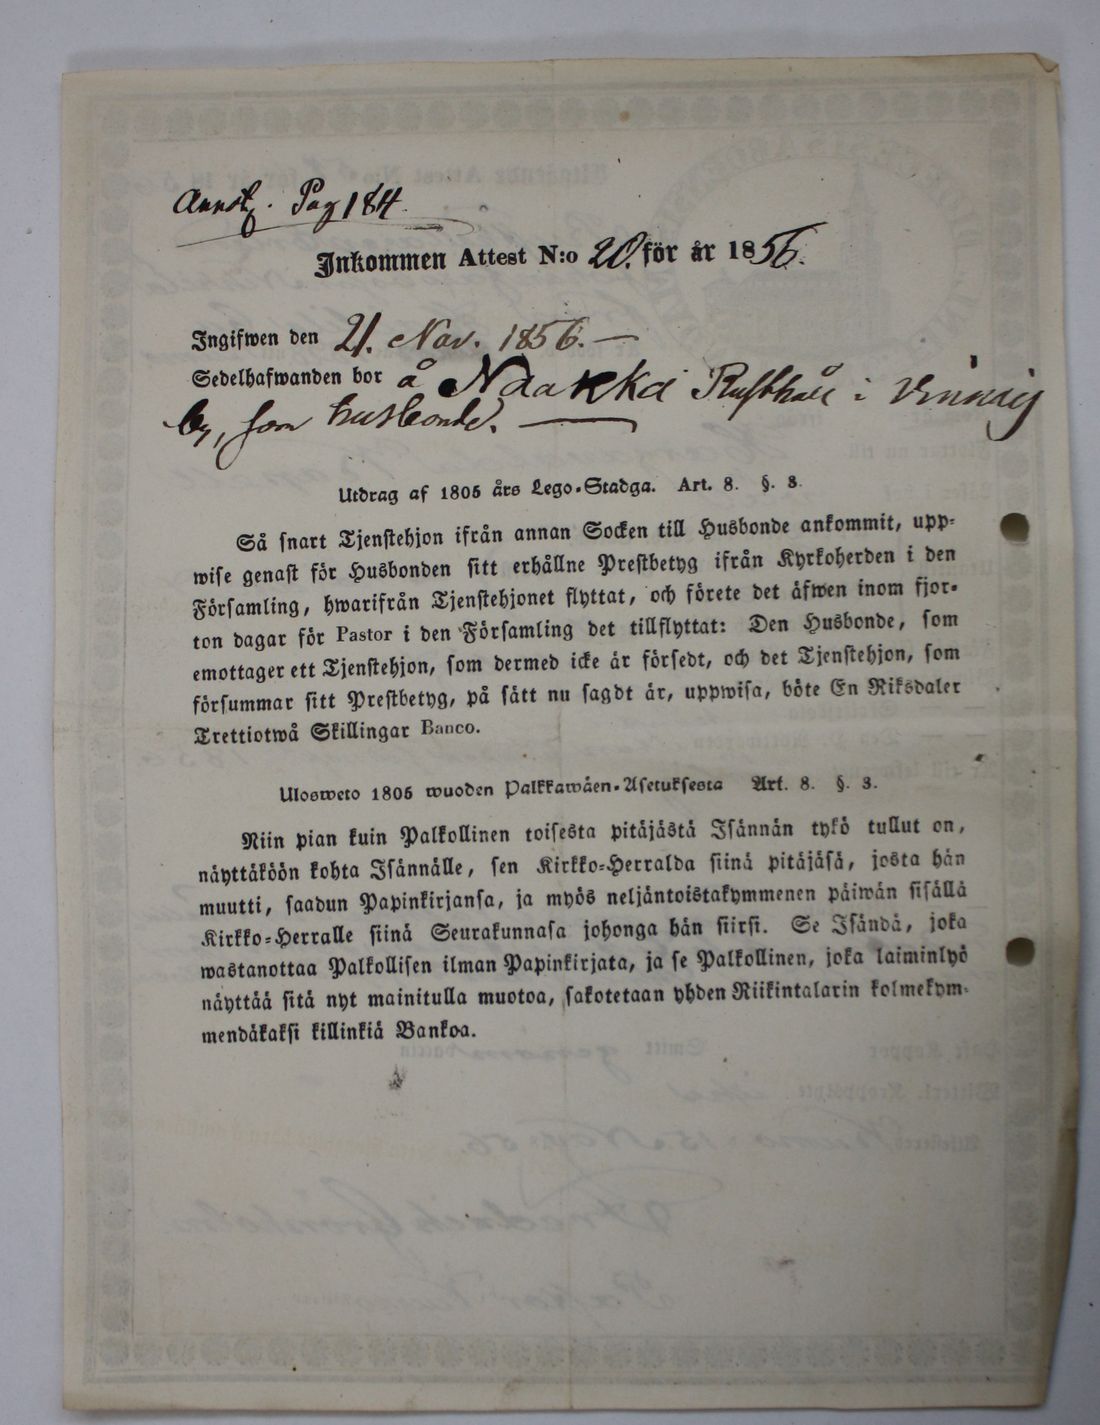 Pag 184.
Inkommen Attest N:o 20. för år 1856.
Ingifwen den 21. Nov. 1856.—
Sedelhafwanden bor å Naakka Rusthåll i
by, som husbonde. —
Utdrag af 1805 års Lego-Stadga. Art. 8. §. 3.
Så snart Tjenstehjon ifrån annan Socken till Husbonde ankommit, upp-
wise genast för Husbonden sitt erhållne Prestbetyg ifrån Kyrkoherden i den
Församling, hwarifrån Tjenstehjonet flyttat, och förete det äfwen inom fjor-
ton dagar för Pastor i den Församling det tillflyttat: Den Husbonde, som
emottager ett Tjenstehjon, som dermed icke är försedt, och det Tjenstehjon, som
försummar sitt Prestbetyg, på sätt nu sagdt är, uppwisa, böte En Riksdaler
Trettiotwå Skillingar Banco.
Ulosweto 1805 wuoden Palkkawäen-Asetuksesta Art. 8. §. 3.
Niin pian kuin Palkollinen toisesta pitäjästä Isännän tykö tullut on,
näyttäköön kohta Isännälle, sen Kirkko-Herralda siinä pitäjäsä, josta hän
muutti, saadun Papinkirjansa, ja myös neljäntoistakymmenen päiwän sisällä
Kirkko-Herralle siinä Seurakunnasa johonga hän siirsi. Se Isändä, joka
wastanottaa Palkollisen ilman Papinkirjata, ja se Palkollinen, joka laiminlyö
näyttää sitä nyt mainitulla muotoa, sakotetaan yhden Riikintalarin kolmekym-
mendäkaksi killinkiä Bankoa.